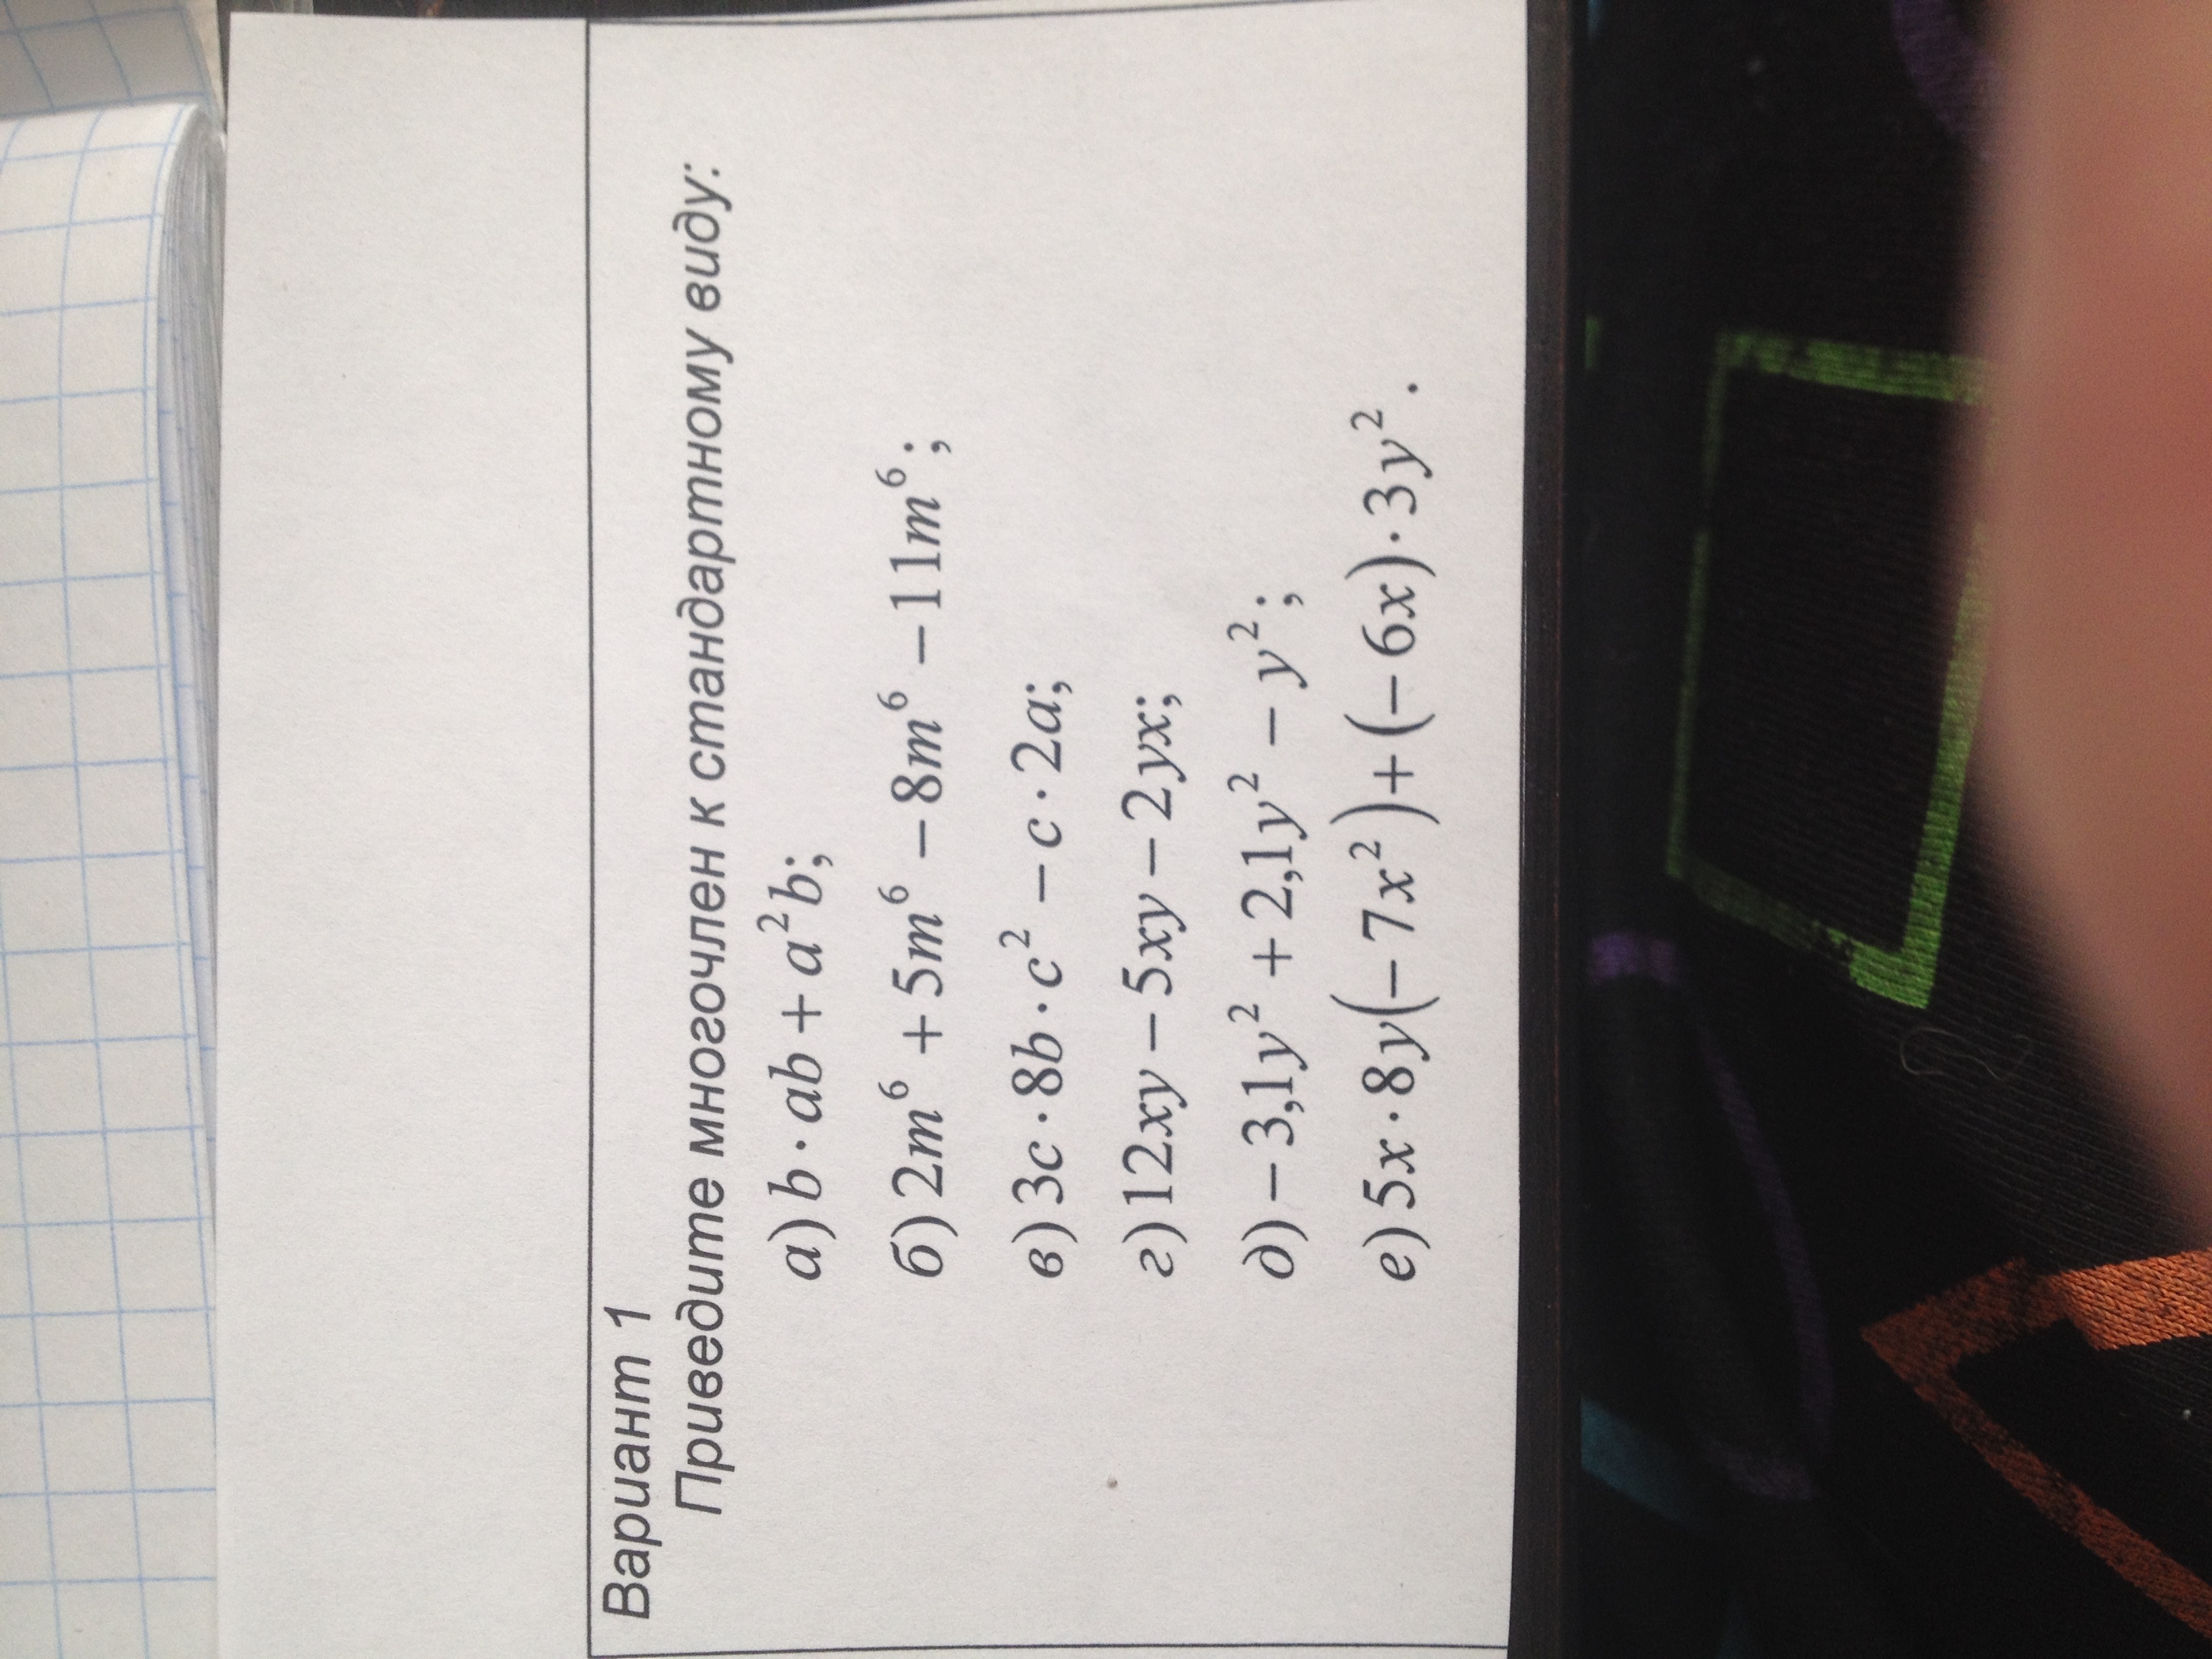 Вариант 1
Приведите многочлен к стандартному виду:
а) b · ab + a²b;
б) 2m⁶ + 5m⁶ − 8m⁶ − 11m⁶;
в) 3c · 8b · c² − c · 2a;
г) 12xy − 5xy − 2yx;
д) − 3,1y² + 2,1y² − y²;
е) 5x · 8y(− 7x²) + (− 6x) · 3y².